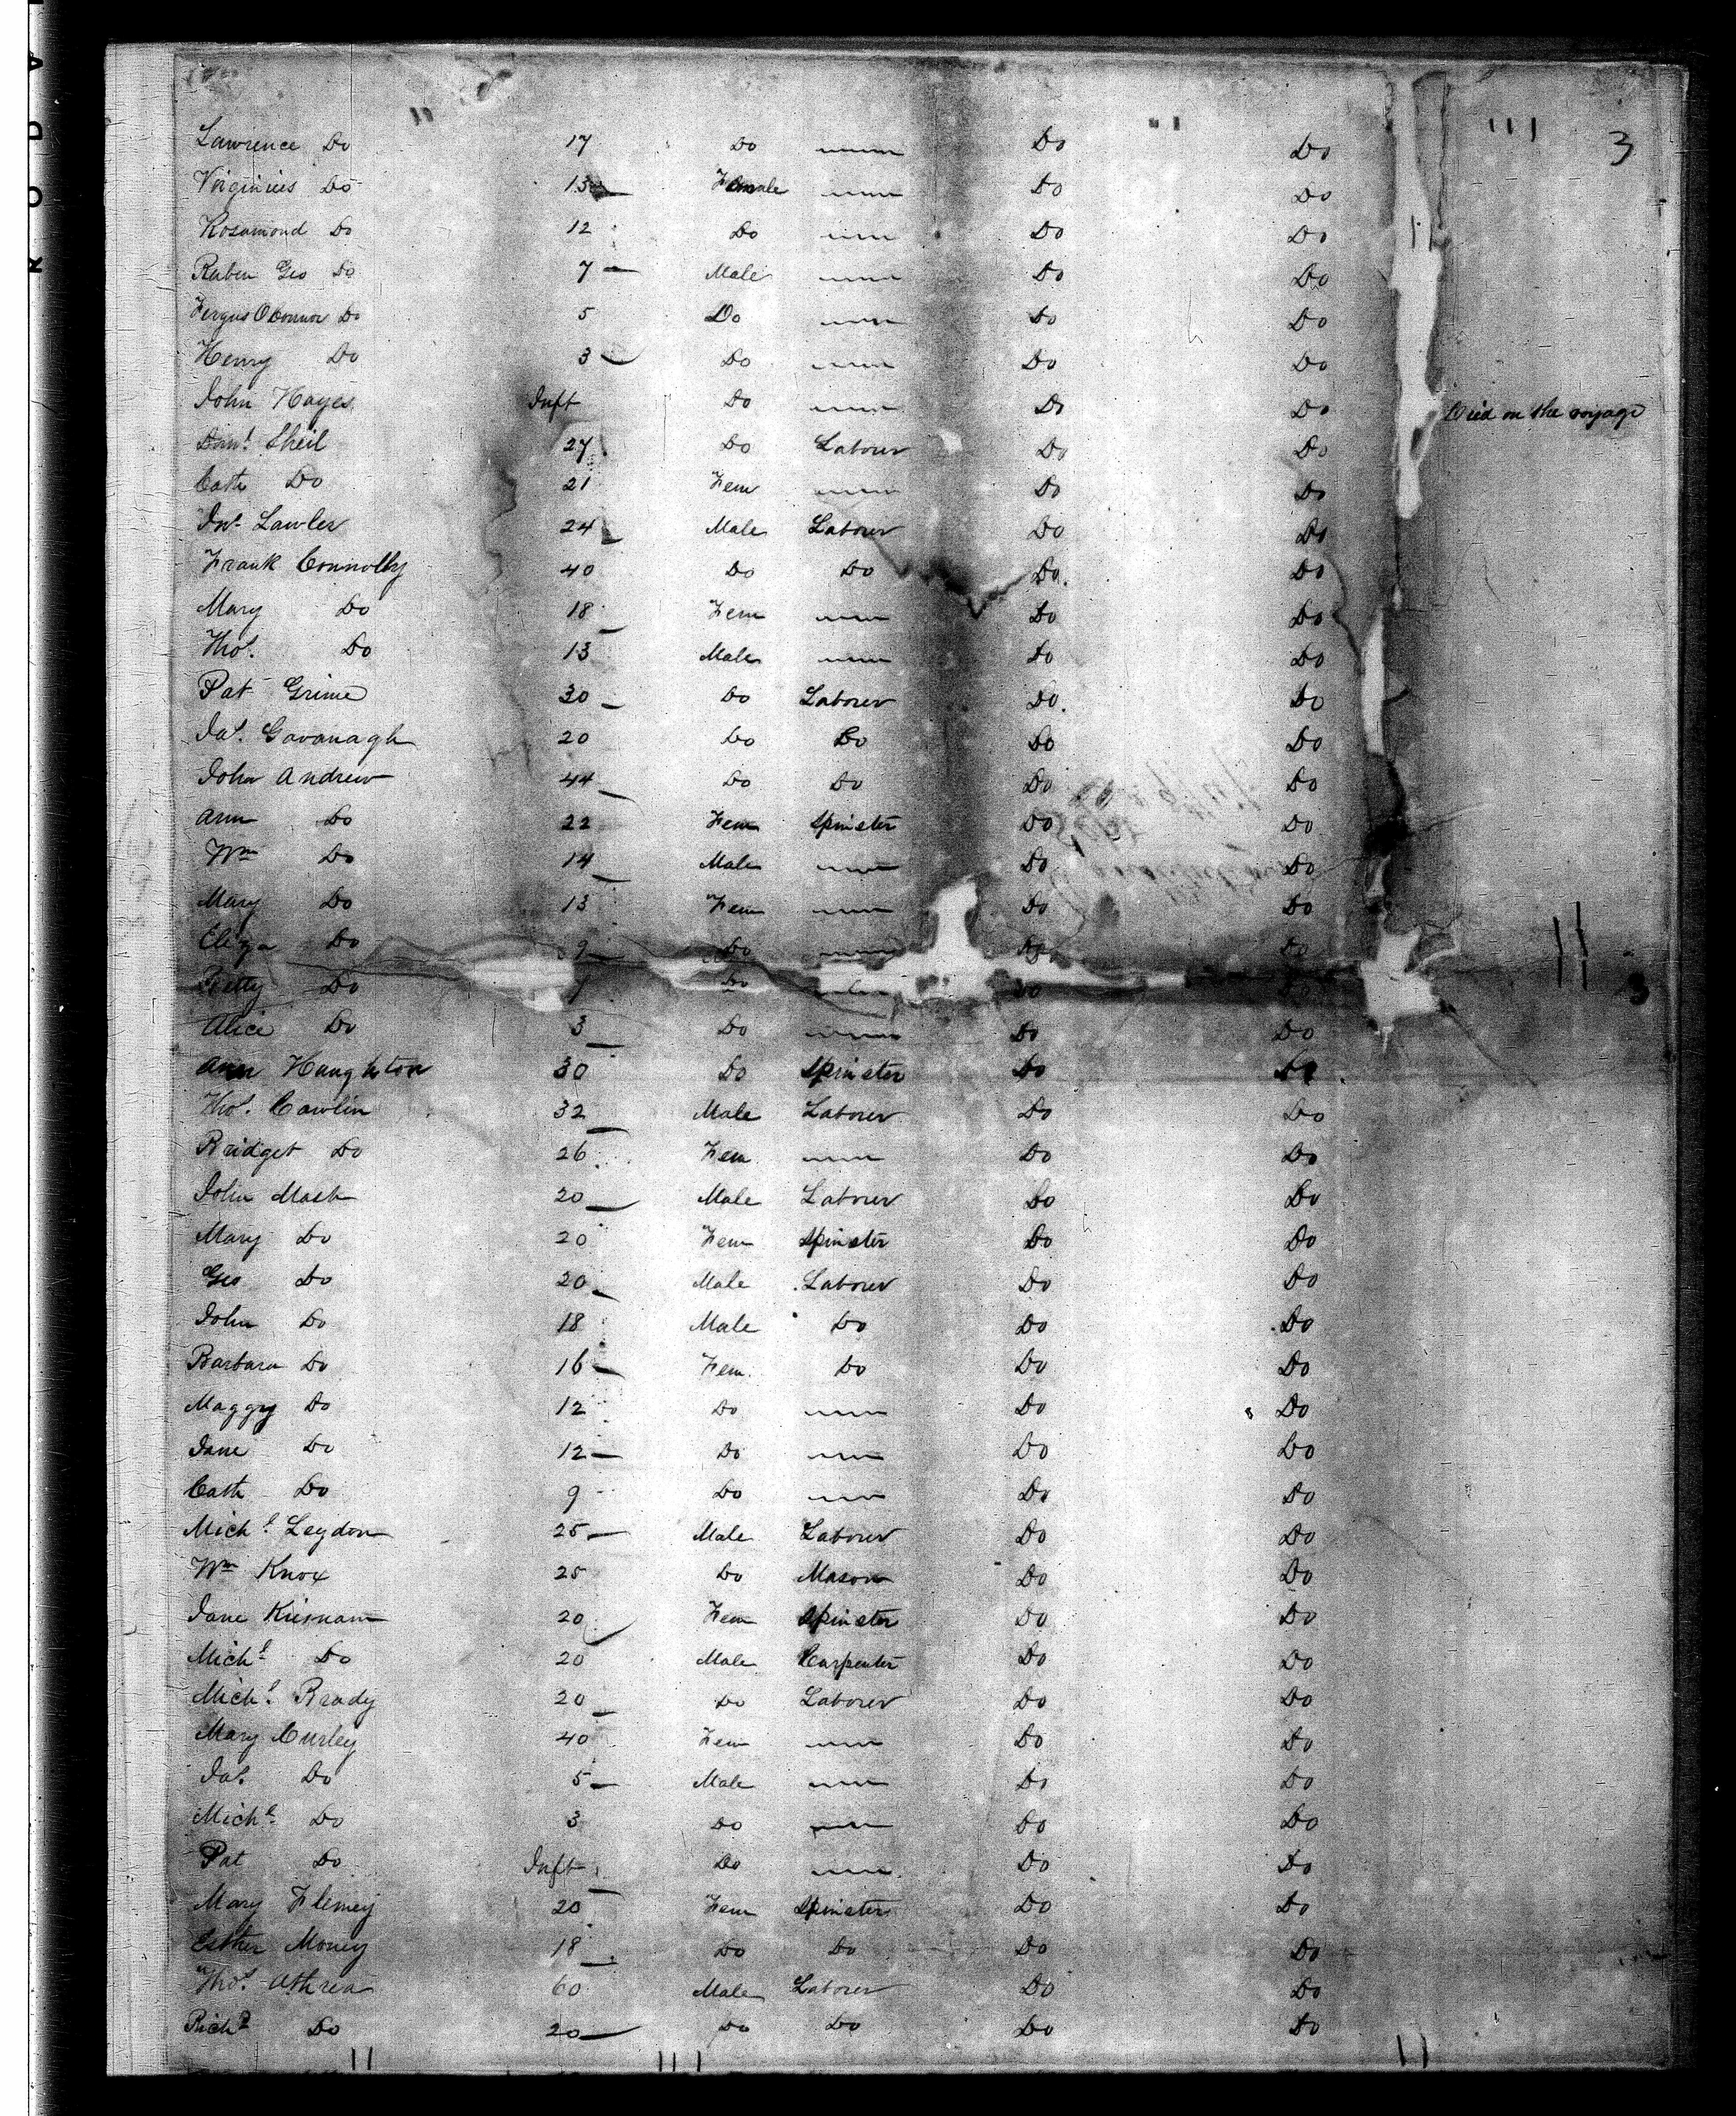 3
Lawrence Do 17 Do Do Do
Virginius Do 13 Female Do Do
Rosamond Do 12 Do Do Do
Ruben Geo Do 7 Male Do Do
Fergus OConnor Do 5 Do Do Do
Henry Do 3 Do Do Do
John Hayes Inft Do Do Do Died on the voyage
Danl Sheil 27 Do Labour Do Do
Cath Do 21 Fem Do Do
Jno Lawler 24 Male Labourer Do Do
Frank Connolly 40 Do Do Do Do
Mary Do 18 Fem Do Do
Thos. Do 13 Male Do Do
Pat Grime 30 Do Laborer Do Do
Jas. Gavanagh 20 Do Do Do Do
John Andrew 44 Do Do Do Do
Ann Do 22 Fem Spinster Do Do
Wm Do 14 Male Do Do
Mary Do 13 Fem Do Do
Eliza Do 9 Do Do Do
Betty Do Do Do Do 3
Alice Do 3 Do Do Do
Ann Haughton 30 Do Spinster Do Do
Thos. Cawlin 32 Male Laborer Do Do
Bridget Do 26 Fem Do Do
John Mash 20 Male Laborer Do Do
Mary Do 20 Fem Spinster Do Do
Geo Do 20 Male Laborer Do Do
John Do 18 Male Do Do Do
Barbara Do 16 Fem Do Do Do
Maggy Do 12 Do Do Do
Jane Do 12 Do Do Do
Cath Do 9 Do Do Do
Michl Leydon 25 Male Laborer Do Do
Wm Knox 25 Do Mason Do Do
Jane Kiernam 20 Fem Spinster Do Do
Michl Do 20 Male Carpenter Do Do
Michl Brady 20 Do Laborer Do Do
Mary Curley 40 Fem Do Do
Jas. Do 5 Male Do Do
Michl Do 3 Do Do Do
Pat Do Inft Do Do Do
Mary Flemey 20 Fem Spinster Do Do
Esther Money 18 Do Do Do Do
Thos. Athrea 60 Male Laborer Do Do
Richd Do 20 Do Do Do Do